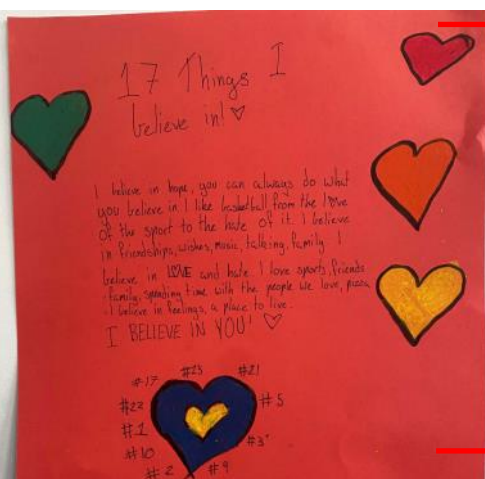 17 Things I
believe in! ♡
I believe in hope, you can always do what
you believe in I like basketball from the love
of the sport to the hate of it. I believe
in friendships, wishes, music, talking, family I
believe in LOVE and hate. I love sports, friends
family, spending time with the people we love, pizza
I believe in feelings, a place to live.
I BELIEVE IN YOU! ♡
#17 #23 #21
#22 #5
#1
#10 #3
#2 #9